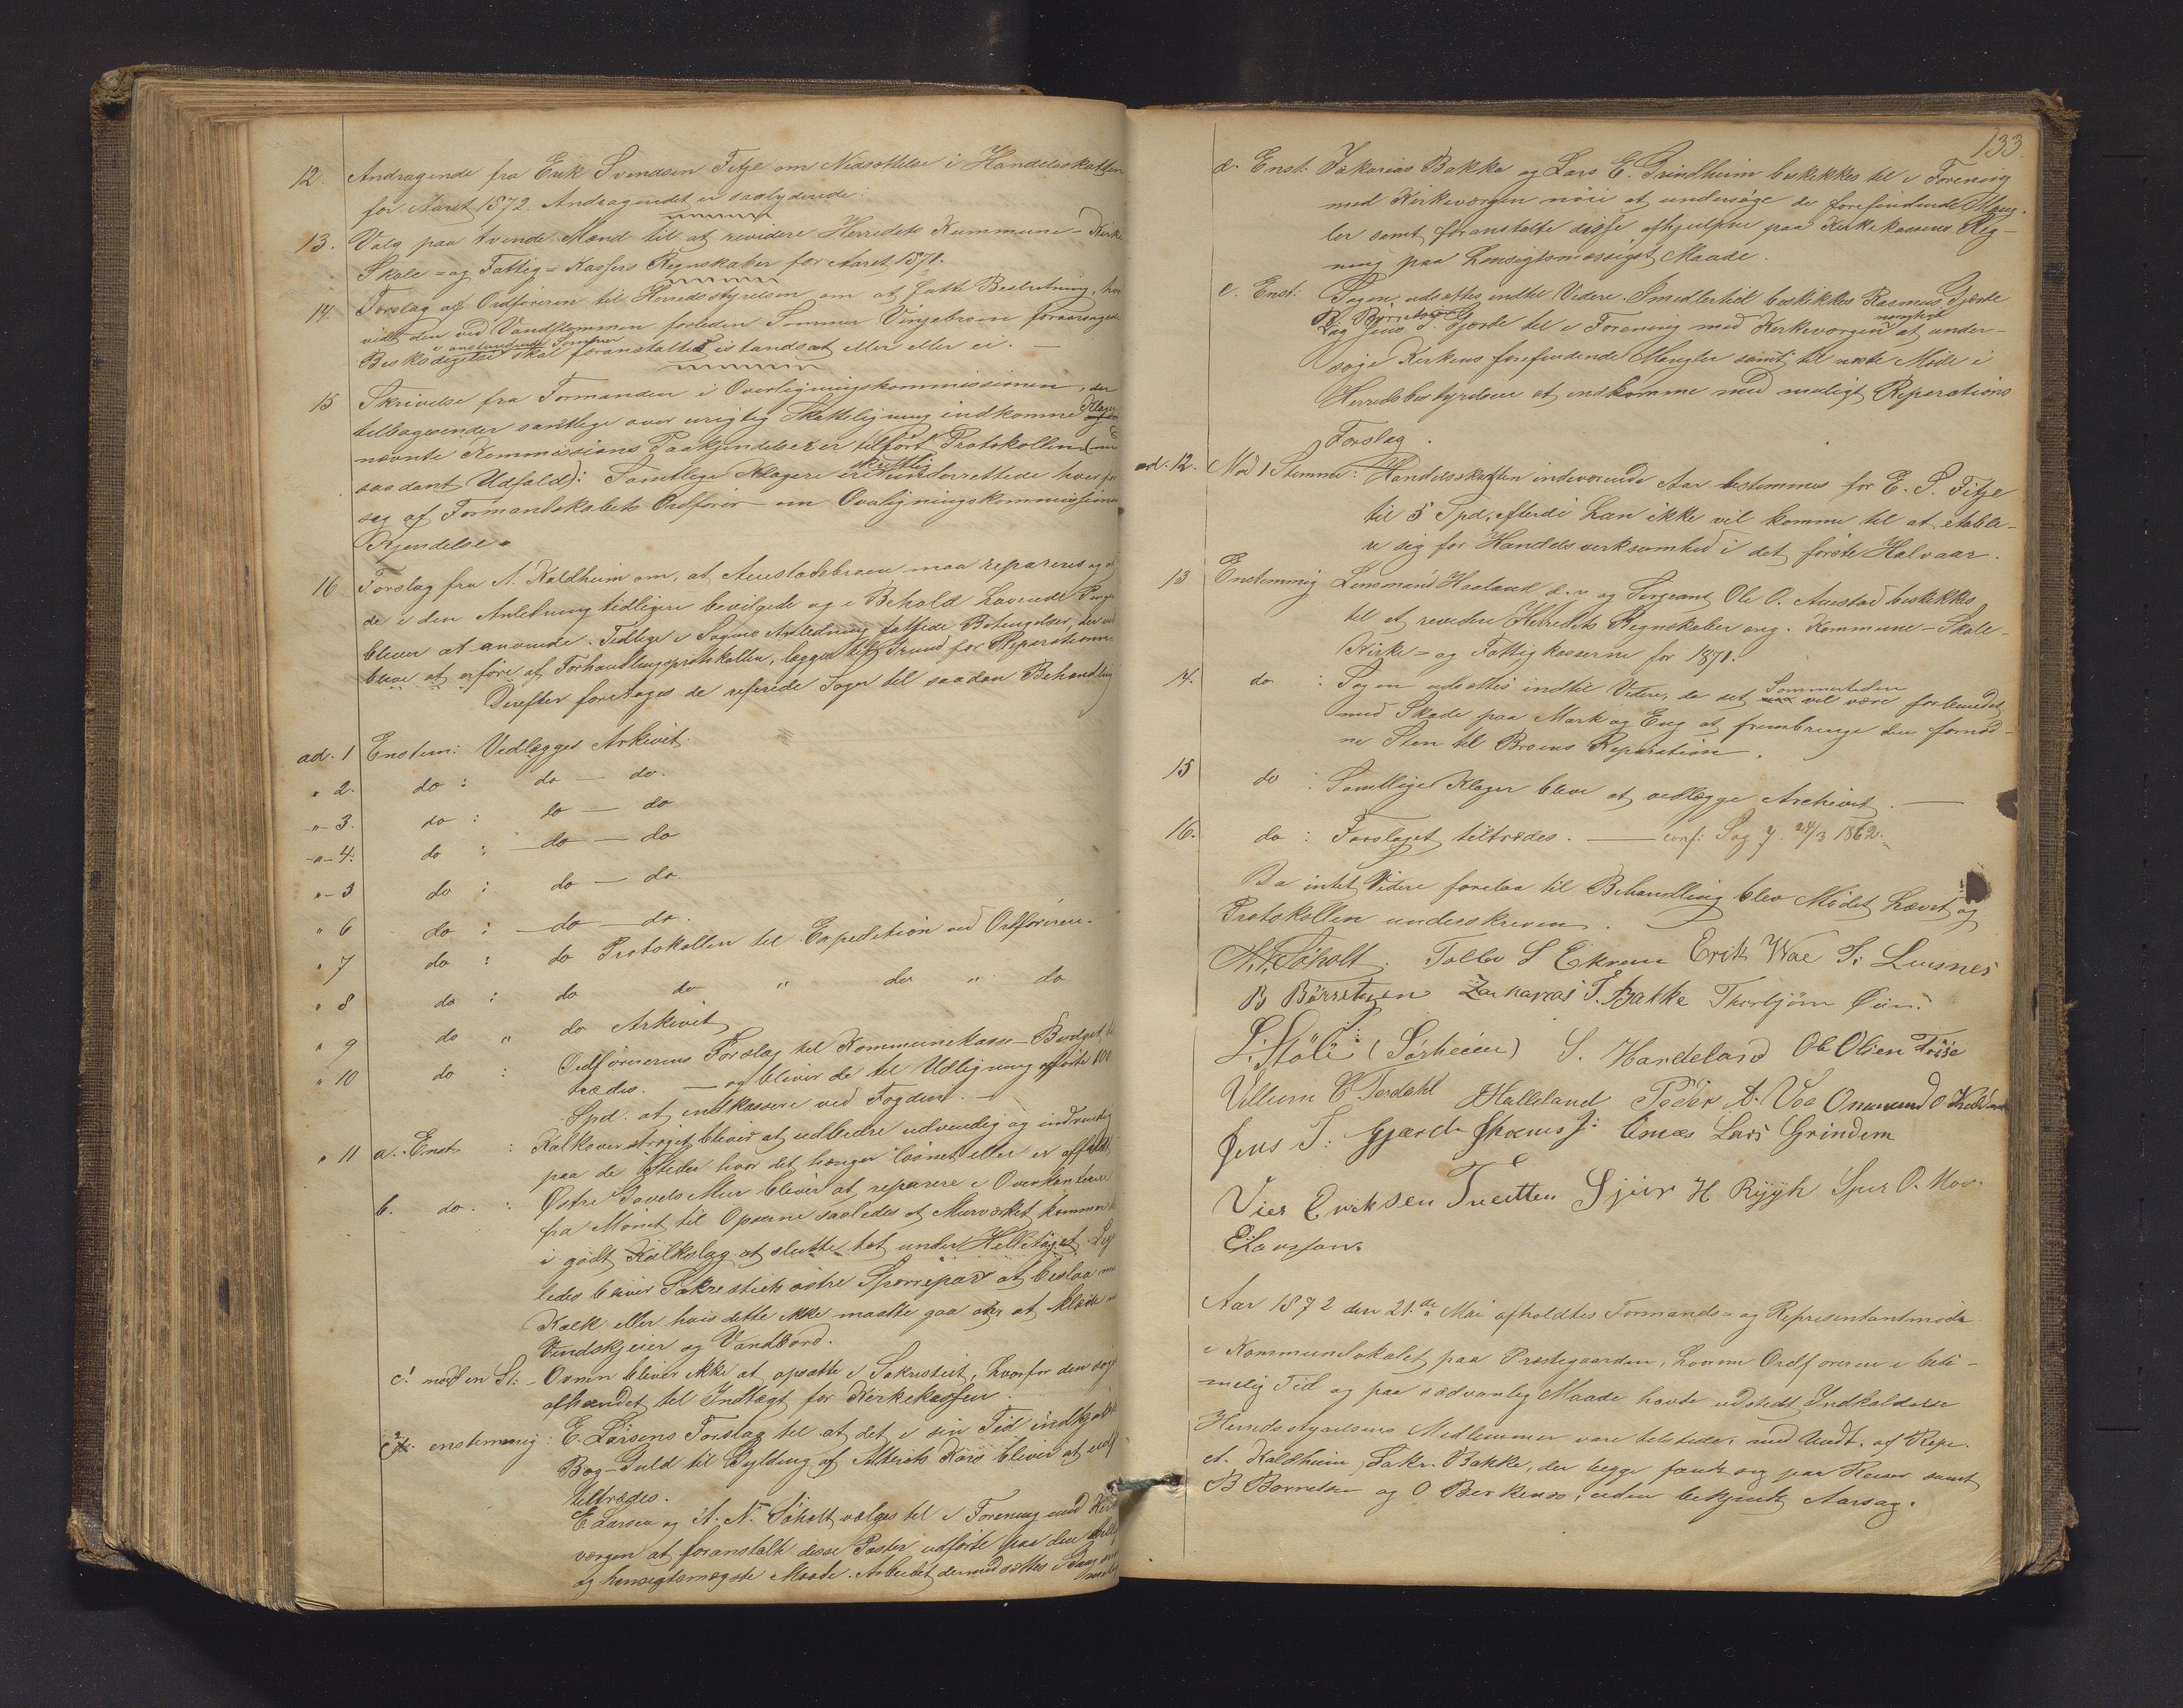 12. Andragende fra Erik Svendsen Fitje om Nedsættelse i Handelsskatten
for Aaret 1872. Andragendet er saalydende:
13. Valg paa tvende Mænd til at revidere Herredets Kommune- Kirke
Skole- og Fattig- Kassers Regnskaber for Aaret 1871.
14. Forslag af Ordføreren til Herredsstyrelsen om at fatte Beslutning, hvor
vidt den ved Vandflommen forleden Sommer Vinjebroen foraarsagede
Beskadigelse i anstundende Sommer skal foranstaltes istandsat eller eller ei. —
15 Skrivelse fra Formanden i Overligningskommissionen, der
tilbagesender samtlige over urigtig Skatteligning indkomne Klager
nævnte Kommissions Paakjendelser er tilført Protokollen (med
saadant Udfald): Samtlige Klagere ere skriftlig underrettede hver for
seg af Formandskabets Ordfører om Overligningskommissionens
Kjendelse.
16 Forslag fra A. Kaldheim om, at Austadsbroen maa repareres og at
de i den Anledning tidligere bevilgede og i Behold havende Penge
bliver at anvende. Tidlige i Sagens Anledning fattede Betingelser, der vil
blive at erfare af Forhandlingsprotokollen, lægges til Grund for Reparationen.
Derefter foretoges de refererede Sager til saadan Behandling
ad. 1 Enstem: Vedlægges Arkivet.
" 2. do : do — do.
" 3. do : do — do
" 4. do : do — do
" 5 do : do — do.
" 6 do : do — do.
" 7 do : do Protokollen til Expedition ved Ordføreren.
" 8 do : do do " do " do
" 9 do " do Arkivet
" 10 do : Ordførerens Forslag til Kommunekasse-Budget til
trædes. — og bliver de til Udligning opførte 100
Spd. at indkassere ved Fogden. —
" 11 a. Enst. : Kalkoverstrøget bliver at udbedre udvendig og indvendig
paa de Steder hvor det hænger løsnet eller er affaldt
b. do. : Østre Gavels Mur bliver at reparere i Overkanterne
fra Mønet til Opserne saaledes at Murværket kommer
i godt Kalkslag at slutte tæt under Helletaget. Lige
ledes bliver Sakrestiets østre Sperrepar at beslaa med
Kalk eller hvis dette ikke maatte gaa an, at klæde med
Vindskjeier og Vandbord.
c1. mod en St: - Ovnen bliver ikke at opsætte i Sakrestiet, hvorfor den søges
afhændet til Indtægt for Kirkekassen.
c2. enstemmig: E. Larsens Forslag til at det i sin Tid indkjøbte
Bog-Guld til Gylding af Alterets Kors bliver at udf
tiltrædes.
E. Larsen og A. N. Søholt vælges til i Forening med Kirke
værgen at foranstalte disse Poster udførte paa den billigste
og hensigtsmæssigste Maade. Arbeidet dermed sættes i Gang snarest
muligt
133.
d. Enst: Zakarias Bakka og Lars E. Grindheim beskikkes til i Forening
med Kirkeværgen nøie at undersøge de forefindende Mang-
ler samt foranstalte disse afhjulpne paa Kirkekassens Reg-
ning paa hensigtsmæssigst Maade.
e. Enst: Sagen udsættes indtil Videre. Imidlertid beskikkes Rasmus Gjærde
B. Børretsen
og Jens T. Gjærde til i Forening med Kirkeværgen nøiagtigt at under-
søge Kirkens forefindende Mangler samt til næste Møde i
Herredsbestyrelsen at indkomme med muligt Reparations
Forslag.
ad. 12. Mod 1 Stemme: Handelsskatten indeværende Aar bestemmes for E. S. Fitje
til 5 Spd, efterdi han ikke vil komme til at etable-
re sig for Handelsverksomhed i det første Halvaar.
13 Enstemmig Lensmand Haaland d.v. og Sergeant Ole O. Austad beskikkes
til at revidere Herredets Regnskaber ang. Kommune- Skole-
Kirke- og Fattigkasserne for 1871.
14. do : Sagen udsættes indtil Videre, da det Sommertiden vil være forbundet
med Skade paa Mark og Eng at frembringe den fornød-
ne Sten til Broens Reparation.
15 do : Samtlige Klager bleve at vedlægge Archivet. —
16. do : Forslaget tiltrædes. — conf: Sag 7. 24/3 1862.
Da intet Videre forelaa til Behandling blev Mødet hævet og
Protokollen underskreven.
A. N. Søholt. Tollev S Ekrene Erik Wae S: Lunsnes
B Børretzen Zackarias T. Bakke Thorbjörn Øen.
L: Støle (Sørheim) S. Handeland Ole Olsen Frøise
Villum C Tordahl Halleland Peder A. Voe Ommund O Kaldheim
Jens T: Gjærde Lars Grindem
Vier Eriksen Tveitten Sjur H Rygh Sjur O. Moe.
E Larssen.
Aar 1872 den 21.de Mai afholdtes Formands- og Representantmøde
i Kommunelokalet paa Prestegaarden, hvorom Ordføreren i beti-
melig Tid og paa sædvanlig Maade havde udstedt Indkaldelse
Herredsstyrelsens Medlemmer vare tilstede, med Undt. af Repr.
A. Kaldheim, Zakr. Bakke, der begge fandt seg paa Reiser samt
B Børretsen og O Berkenes, uden bekjendt Aarsag.